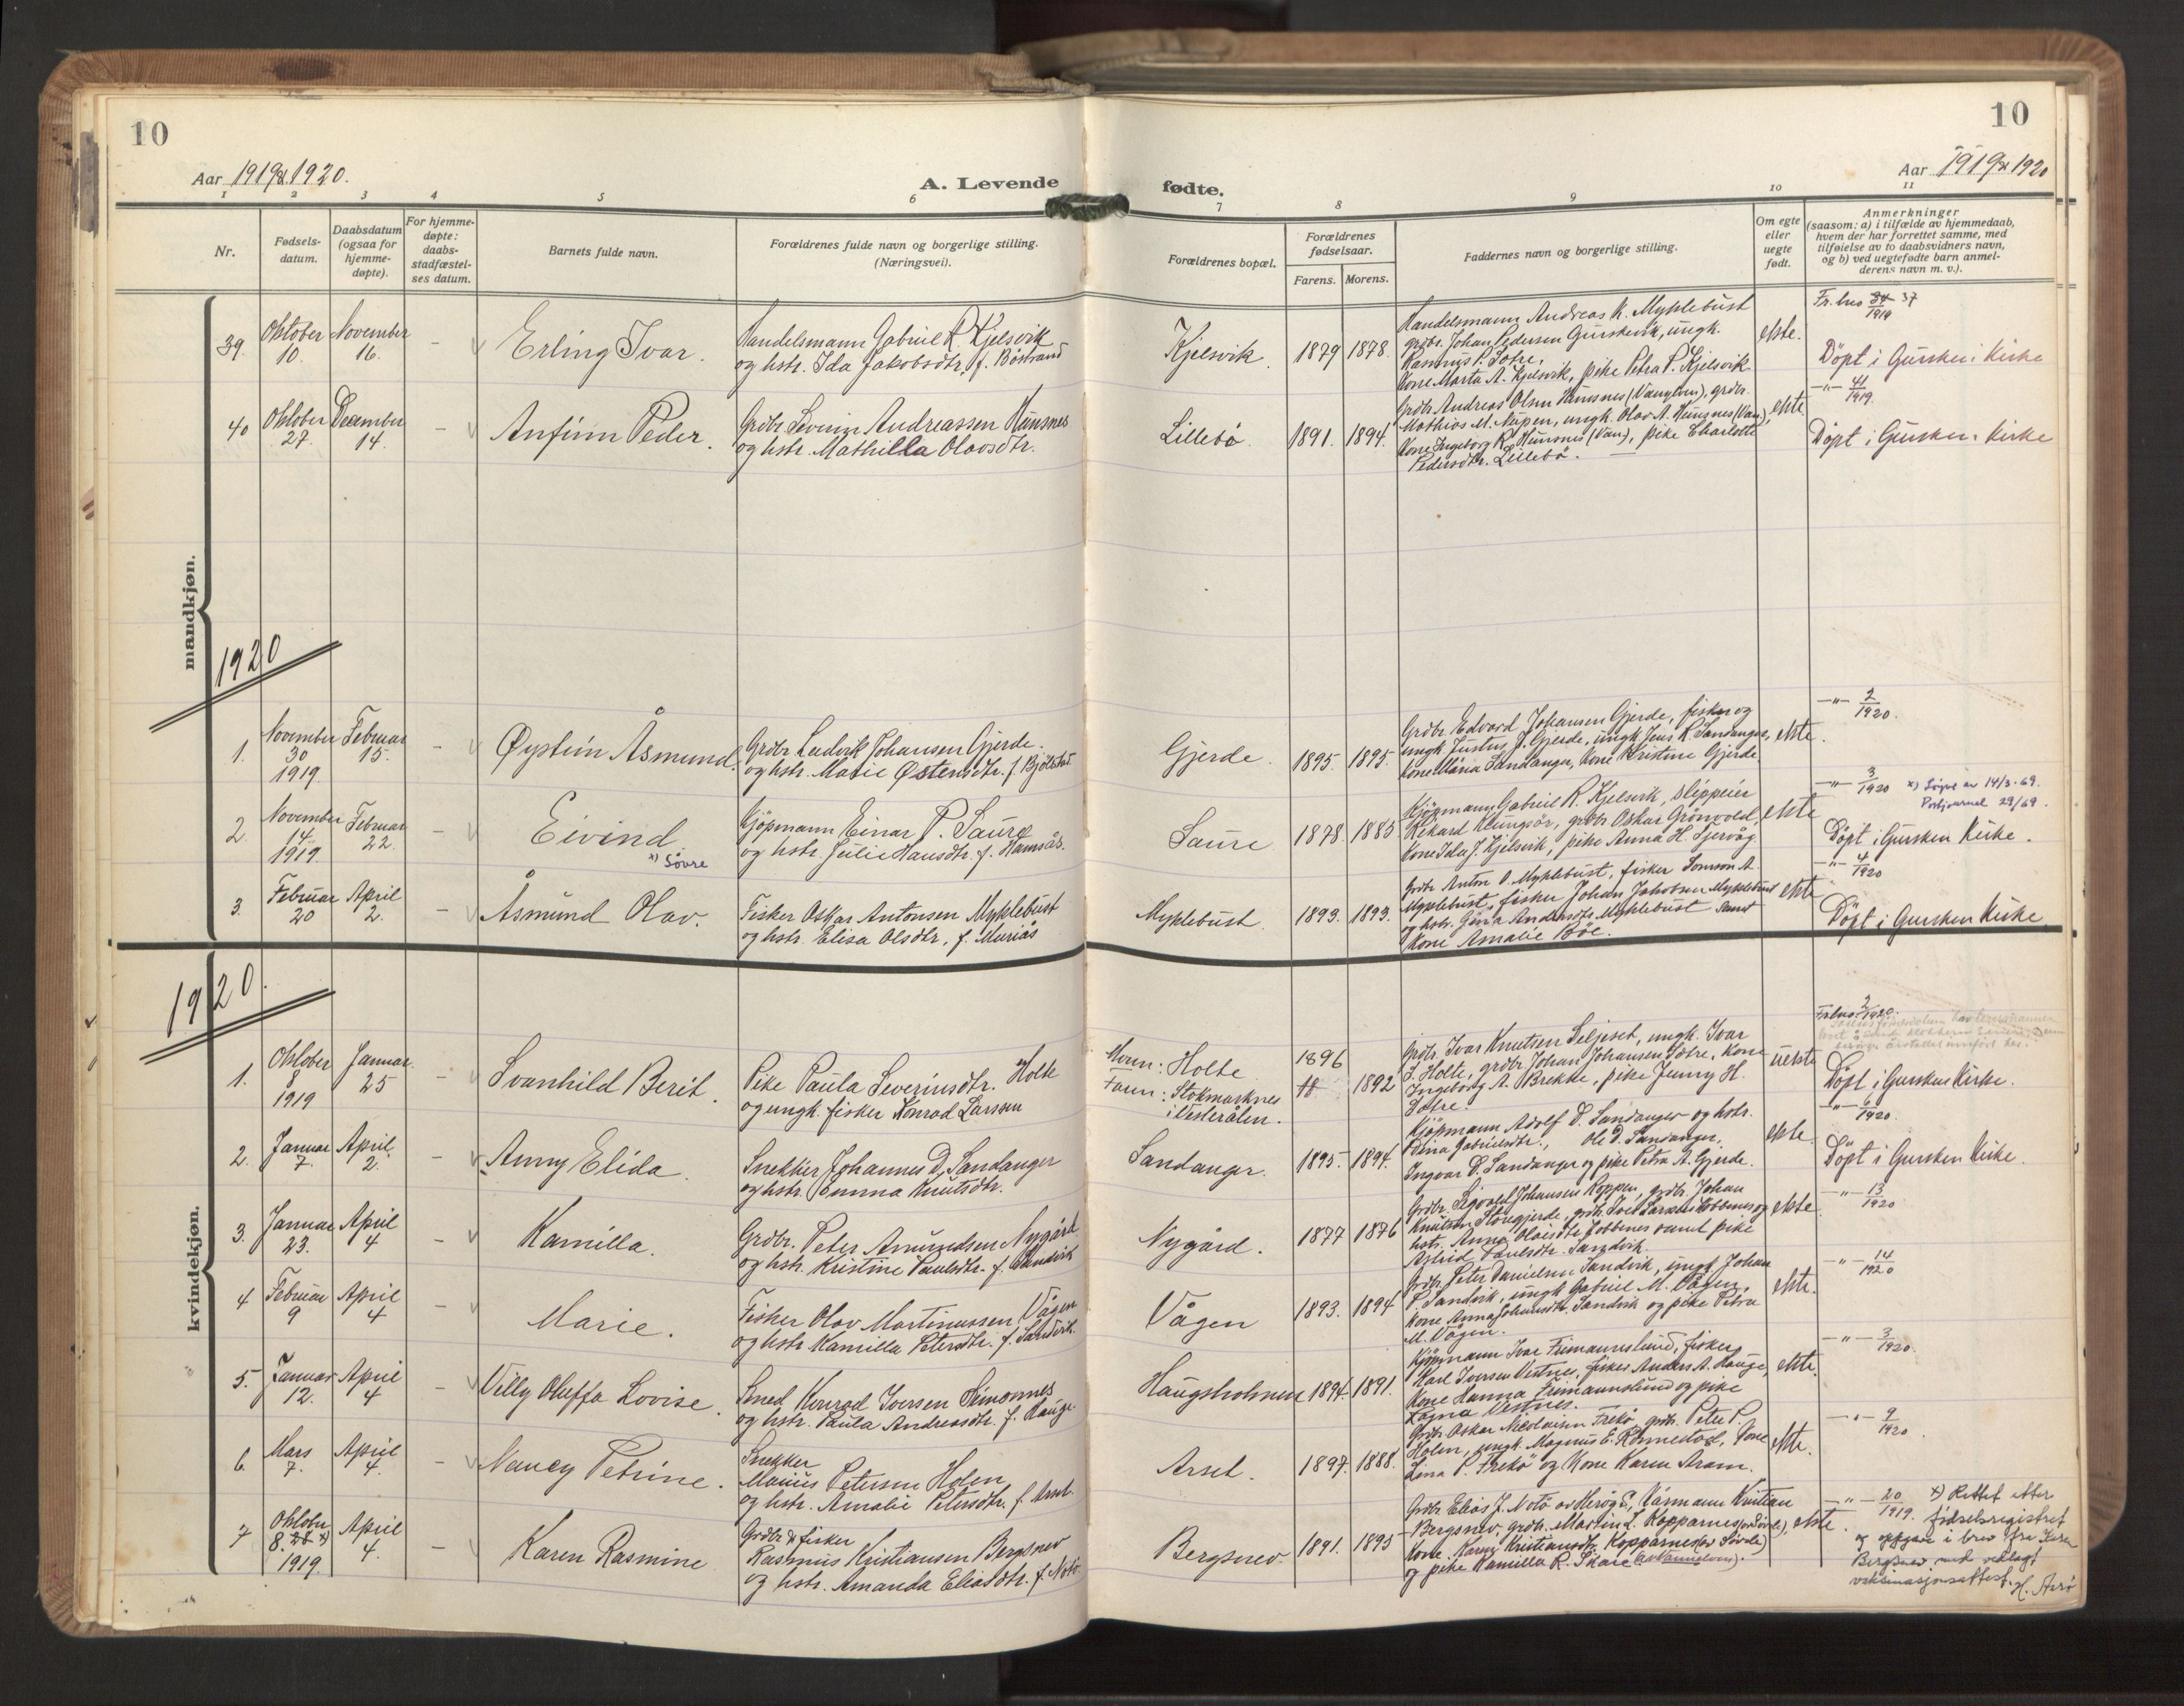 10
10
Aar 1919 & 1920.
A. Levende
fødte.
Aar 1919 & 1920
1
2
3
4
5
6
7
8
9
10
11
Nr.
Fødsels-
datum.
Daabsdatum
(ogsaa for
hjemme-
døpte).
For hjemme-
døpte:
daabs-
stadfæstel-
ses datum.
Barnets fulde navn.
Forældrenes fulde navn og borgerlige stilling.
(Næringsvei).
Forældrenes bopæl.
Forældrenes
fødselsaar.
Farens.
Morens.
Faddernes navn og borgerlige stilling.
Om egte
eller
uegte
født.
Anmerkninger
(saasom: a) i tilfælde av hjemmedaab,
hvem der har forrettet samme, med
tilføielse av to daabsvidners navn,
og b) ved uegtefødte barn anmel-
derens navn m. v.).
mandkjøn.
39.
Oktober
10.
November
16.
-
Erling Ivar.
Handelsmann Gabriel R. Kjelsvik
og hstr. Ida Jakobsdtr. f. Böstrand
Kjelsvik.
1879
1878.
Handelsmann Andreas K. Myklebust
grdbr. Johan Pedersen Gurskevik, ungk.
Rasmus P. Sætre,
Kone Marta A. Kjelsvik, pike Petra P. Kjelsvik
ekte.
Fr. bno 34 37
1919
Döpt i Gursken Kirke
40
Oktober
27.
December
14.
-
Anfinn Peder.
Grdbr. Severin Andreassen Hunsnes
og hstr. Mathilla Olavsdtr.
Lillebö.
1891.
1894.
Grdbr. Andreas Olsen Hunsnes (Vanylven), grdbr.
Mathias M. Nupen, ungk. Olav A. Hunsnes (Van.),
Kone Ingeborg R. Hunsnes (Van), pike Charlotte
Pedersdtr. Lillebö.
ekte
-"- 41
1919.
Döpt i Gursken Kirke
1920
1.
November
30
1919.
Februar
15.
-
Øystein Åsmund.
Grdbr Ludvik Johansen Gjerde.
og hstr. Marie Østensdtr. f. Bjölstad
Gjerde.
1895.
1895.
Grdbr Edvard Johansen Gjerde, fisker og
ungk. Justus J. Gjerde, ungk Jens R. Sandanger,
kone Maria Sandanger, kone Kristine Gjerde.
ekte.
-"- 2
1920.
2.
November
14.
1919
Februar
22.
-
Eivind
x) Søvre
Kjöpmann Einar P. Saure
og hstr. Julie Hansdtr. f. Hamsås.
Saure
1878.
1885
Kjöpmann Gabriel R. Kjelsvik, skipper
Rikard Klungsör, grdbr Oskar Grönvold,
Kone Ida J. Kjelsvik, pike Anna H. Sjervåg.
ekte
-"- 3
1920
14/3.69.
29/69.
Döpt i Gursken Kirke.
3.
Februar
20
April
2.
-
Åsmund Olav.
Fisker Oskar Antonsen Myklebust
og hstr. Elisa Olsdtr. f. Muriås
Myklebust.
1893.
1893.
Grdbr Anton O. Myklebust, fisker Samson A.
Myklebust, fisker Johan Jakobsen Myklebust
og hstr. Gina Andersdtr. Myklebust samt
Kone Amalie Böe.
ekte
-"- 4
1920
Döpt i Gursken Kirke
kvindekjøn.
1920.
1.
Oktober
8
1919
Januar
25
-
Svanhild Berit.
Pike Paula Severinsdtr. Holte
og ungk. fisker Konrad Larssen
Moren: Holte
Faren: Stokmarknes
i Vesterålen.
1896
1892
Grdbr. Ivar Knutsen Seljeset, ungk. Ivar
S. Holte, grdbr. Johan Johansen Sætre, Kone
Ingeborg A. Brekke, pike Jenny H.
Sætre.
uekte
Fr. bno 2
1920.
Döpt i Gursken Kirke.
2.
Januar
7.
April
2.
-
Anny Elida.
Snekker Johannes D. Sandanger
og hstr. Emma Knutsdtr.
Sandanger.
1895.
1894.
Kjöpmann Adolf D. Sandanger og hstr.
Dina Gabrielsdtr., Ole D. Sandanger,
Ingvar D. Sandanger og pike Petra A. Gjerde.
ekte.
-"- 6
1920.
Döpt i Gursken Kirke.
3.
Januar
23.
April
4
-
Kamilla.
Grdbr. Peter Amundsen Nygård
og hstr. Kristine Paulsdtr. f. Sandvik
Nygård.
1877
1876
Grdbr. Sigvald Johansen Koppen, grdbr. Johan
Knutsen Storegjerde, grdbr. Iver Larsen Jobbenes og
hstr. Anna Olavsdtr. Jobbenes samt pike
Astrid Paulsdtr. Sandvik.
ekte.
-"- 13
1920
4
Februar
9
April
4
-
Marie.
Fisker Olav Martinussen Vågen
og hstr Kamilla Petersdtr. f. Sandvik.
Vågen
1893.
1894
Grdbr. Peter Danielsen Sandvik, ungk Johan
P. Sandvik, ungk Gabriel M. Vågen,
Kone Anna Johansdtr. Sandvik og pike Petra
M. Vågen.
ekte.
-"- 14
1920
5.
Januar
12.
April
4
-
Villy Oluffa Lovise.
Smed Konrad Iversen Simonnes
og hstr. Paula Andreasdtr. f. Hauge.
Haugsholmen
1894.
1891.
Kjöpmann Ivar Frimannslund, fisker
Karl Iversen Vestnes, fisker Anders A. Hauge,
Kone Hanna Frimannslund og pike
Ragna Vestnes.
ekte.
-"- 3
1920.
6.
Mars
7.
April
4.
-
Nancy Petrine.
Snekker
Marius Petersen Holen
og hstr. Amalie Petersdtr. f. Arset.
Arset.
1897.
1888.
Grdbr. Oskar Nicolaisen Frekö, grdbr. Peter P.
Holen, ungk. Magnus E. Rönnestad, Kone
Lina P. Frekö og Kone Karen Aram.
ekte.
-"- 9
1920
7
Oktober
8. 28 x)
1919.
April
4.
-
Karen Rasmine
Grdbr & fisker
Rasmus Kristiansen Bergsnev
og hstr. Amanda Eliasdtr. f. Notö.
Bergsnev
1891.
1895
Grdbr Elias J. Notö av Herög S., Kårmann Kristian
Bergsnev, grdbr. Martin L. Kopparnes (av Sövde),
Kone Karen Kristiansdtr. Kopparnes (av Sövde)
og pike Kamilla R. Skare (av Vannelven).
ekte.
-"- 20
1919.
x) Rettet etter
fødselsregistret
og oppgave i brev fra Iver
Bergsnev med vedlagt
vaksinasjonsattest. H. Aarö